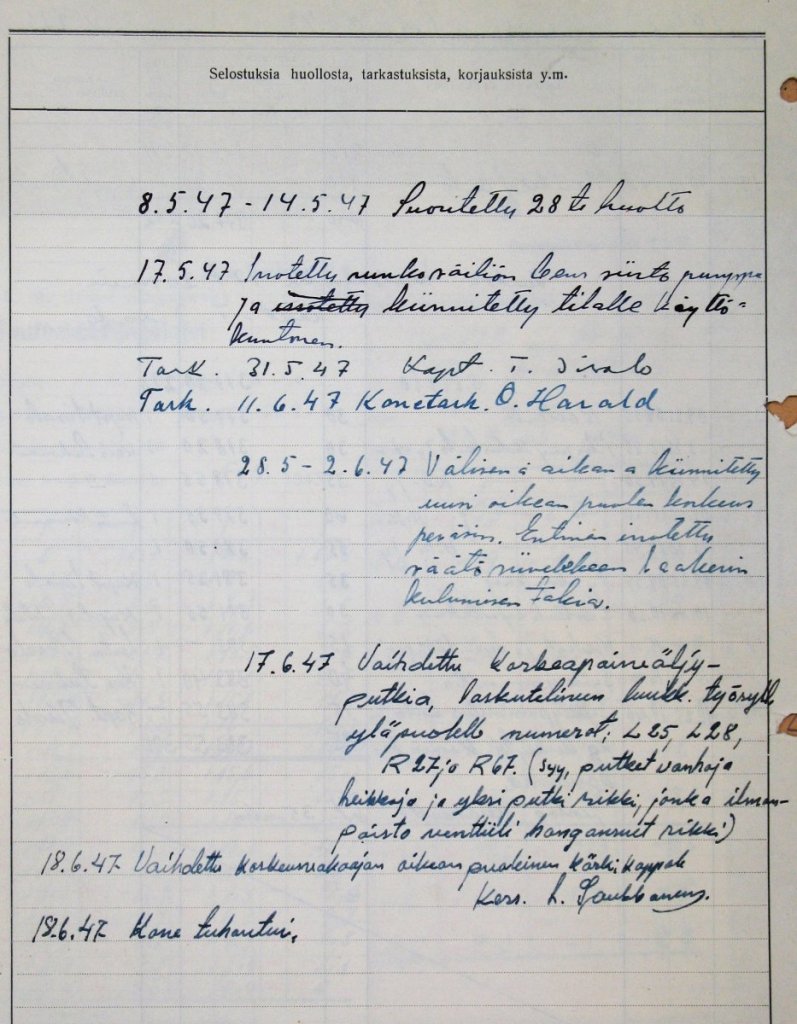 Selostuksia huollosta, tarkastuksista, korjauksista y.m.
8.5.47 - 14.5.47 Suoritettu 28 t. huolto
17.5.47 Irrotettu runkosäiliön siirto pumppu
ja irrotettu kiinnitetty tilalle käyttö=
kuntonen.
Tark. 31.5.47 Kapt. T.
Tark. 11.6.47 Konetark. O. Harald
28.5 - 2.6.47 Välisenä aikana kiinnitetty
uusi oikean puolen korkeus
peräsin. Entinen irrotettu
siivekkeen laakerin
kulumisen takia.
17.6.47 Vaihdettu korkeapaineöljy-
putkia, laskutelineen luukk. työsyl.
yläpuolelle numerot; L25, L28,
R27 ja R67. (syy, putket vanhoja
heikkoja ja yksi putki rikki, jonka ilman-
päisto venttiili hangannut rikki)
18.6.47 Vaihdettu korkeusvakaajan oikean puoleinen kärki kappale
Kers. L.
18.6.47 Kone tuhoutui.